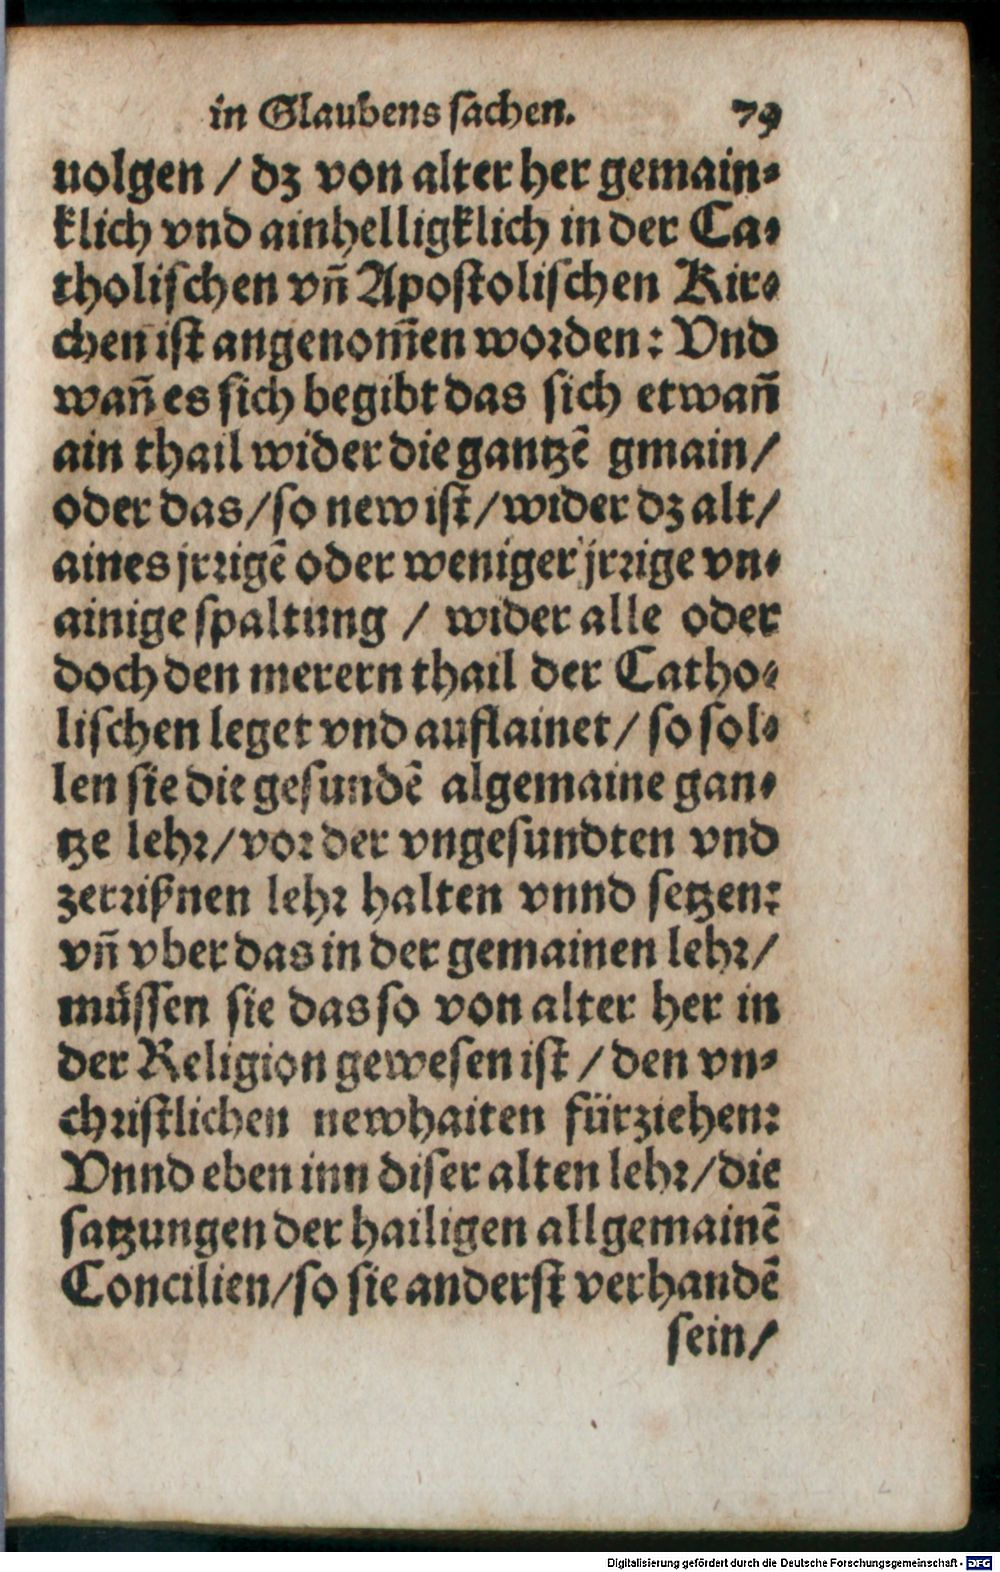 in Glaubens sachen. 79
uolgen / dz von alter her gemain⸗
klich vnd ainhelligklich in der Ca⸗
tholischen vñ Apostolischen Kir⸗
chen ist angenom̃en worden: Vnd
wañ es sich begibt das sich etwañ
ain thail wider die gantzẽ gmain/
oder das/so new ist/wider dz alt/
aines jrrigẽ oder weniger jrrige vn⸗
ainige spaltung / wider alle oder
doch den merern thail der Catho⸗
lischen leget vnd auflainet/so sol⸗
len sie die gesundẽ algemaine gan⸗
tze lehr/vor der vngesundten vnd
zerrißnen lehr halten vnnd setzen:
vñ vber das in der gemainen lehr/
müssen sie das so von alter her in
der Religion gewesen ist / den vn⸗
christlichen newhaiten fürziehen:
Vnnd eben inn diser alten lehr/die
satzungen der hailigen allgemainẽ
Concilien/so sie anderst verhandẽ
sein/
Digitalisierung gefördert durch die Deutsche Forschungsgemeinschaft - DFG